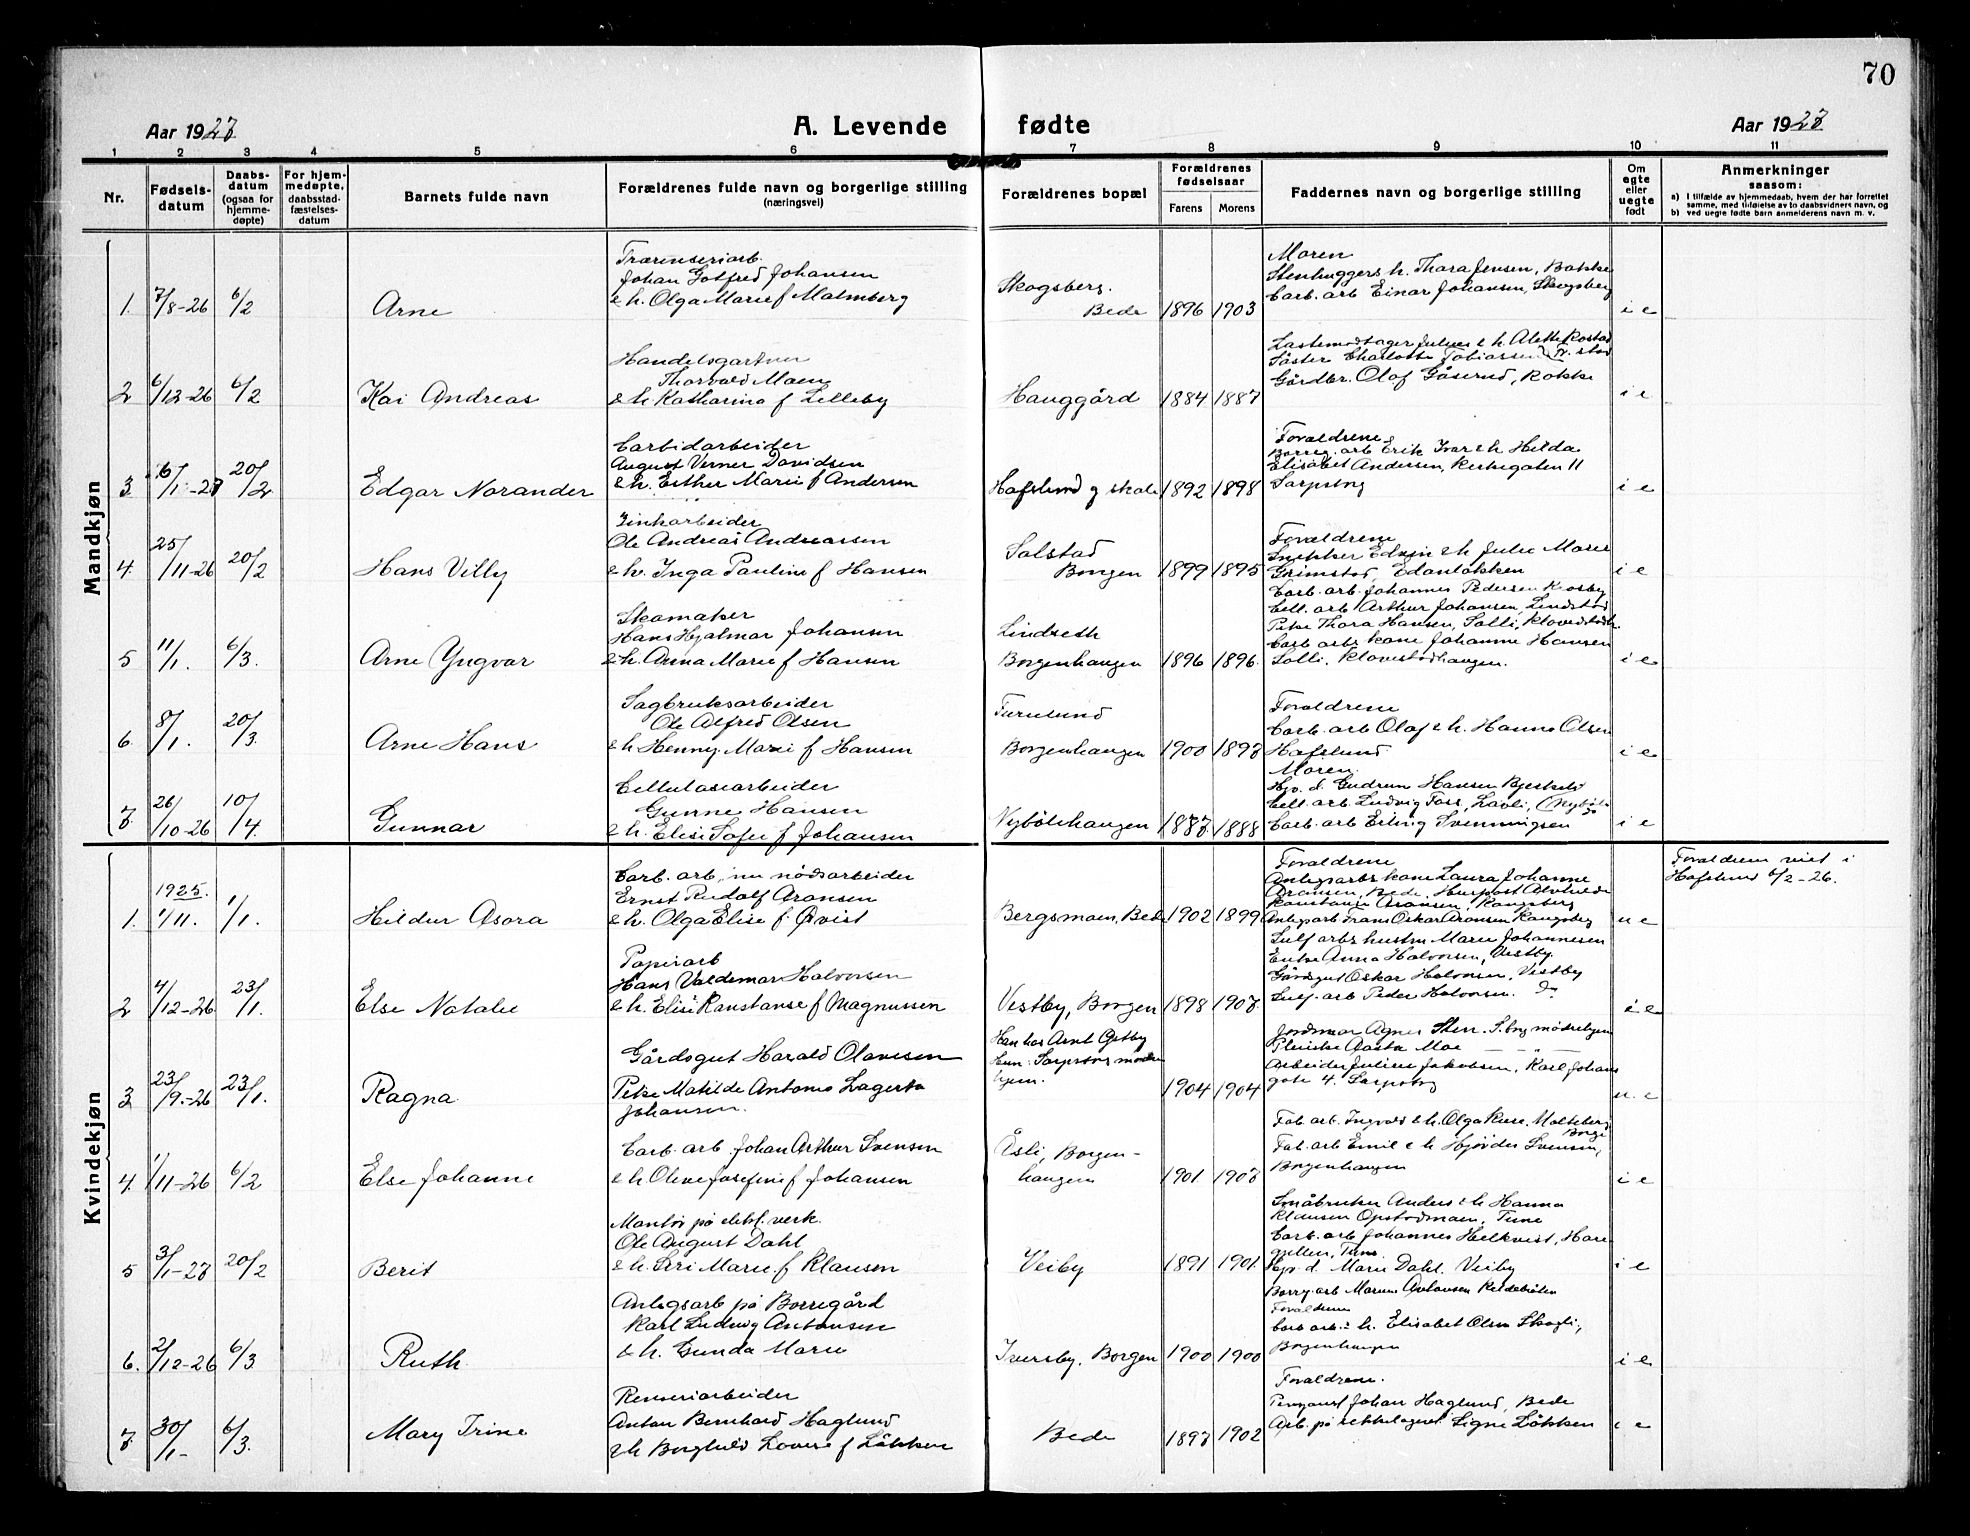 70
Aar 1927 A. Levende fødte Aar 1927
1 2 3 4 5 6 7 8 9 10 11
Nr. Fødselsdatum Daabsdatum (ogsaa for hjemmedøpte) For hjemmedøpte, daabsstadfæstelsesdatum Barnets fulde navn Forældrenes fulde navn og borgerlige stilling (næringsvei) Forældrenes bopæl Forældrenes fødselsaar Farens Morens Faddernes navn og borgerlige stilling Om egte eller uegte født Anmerkninger saasom:
a) I tilfælde av hjemmedaab, hvem der har forrettet samme, med tilføielse av to daabsvidners navn, og
b) ved uegte fødte barn anmelderens navn m. v.
Mandkjøn
Trærenseriarb.
Johan Gotfred Johansen
1. 7/8-26 6/2 Arne & h. Olga Marie f Malmberg
Skogsberg.
Bede 1896 1903
Moren
Stenhuggers h. Thora Jensen, Bakke
Carb. arb Einar Johansen, Skogsberg
i e
Handelsgartner
Thorvald Moen
2 6/12-26 6/2 Kai Andreas & h Katharina f Lilleby
Hauggård 1884 1887
Lastemodtager Julius & h. Alette Rostad
Söster Charlotte Tobiassen
Gårdbr. Olaf Gåserud, Rokke
i e
Carbidarbeider
August Verner Davidsen
3 16/1-27 20/2 Edgar Norander & h. Esther Marie f Andersen
Hafslund g skole 1892 1898
Foraldrene
Borreg. arb Erik Ivar & h Hilda
Elisabet Andersen, Kirkegaten 11
Sarpsborg
i e
Zinkarbeider
Ole Andreas Andreassen
4. 25/11-26 20/2 Hans Villy & h. Inga Pauline f Hansen
Solstad
Borgen 1899 1895
Foraldrene
Snekker Edvin & h Julie Marie
Grimstad, Edanløkken
i e
Skomaker
Hans Hjalmar Johansen
5 11/1. 6/3. Arne Yngvar & h. Anna Marie f Hansen
Lindseth
Borgenhaugen 1896 1896.
Carb. arb. Johannes Pedersen Kosby
Cell. arb Arthur Johansen, Lindstad
Pike Thora Hansen, Solli,
Carb arbs kone Johanne Hansen
Solli, Klavestadhaugen.
i e
Sagbruksarbeider
Ole Alfred Olsen
6. 8/1. 20/3. Arne Hans & h Henny Marie f Hansen
Furulund
Borgenhaugen 1900 1897
Foraldrene
Carb. arb Olaf & h. Hanna Olsen
Hafslund
i e
Cellulosearbeider
Gunne Hansen
7 26/10-26 10/4. Gunnar & h. Elise Sofie f Johansen
Nybölehaugen 1887 1888
Moren.
Hjv. d. Gudrun Hansen
Cell. arb Ludvig Foss,
Carb. arb Erling Svenningsen
i e
Kvindekjøn
Carb. arb. nu nødsarbeider
Ernst Rudolf Aronsen
1. 1925. 1/11. 1/1. Hildur Asora & h. Olga Elise f. Qvist
Bergsmoen, Bede 1902 1899
Foraldrene
Anlegsarbs kone Laura Johanne
Aronsen, Bede,
Konstanse Aronsen, Kongsberg
Anlegsarb Frans Oskar Aronsen Kongsberg
u e
Foraldrene viet i
Hafslund 6/2-26.
Papirarb
Hans Valdemar Halvorsen
2 4/12-26 23/1. Else Natalie & h. Elise Konstanse f Magnussen
Vestby, Borgen 1898 1907
Sulf arbs hustru Marie Johannesen
Enke Anna Halvorsen, Vestby
Gårdsgut Oskar Halvorsen, Vestby
Sulf. arb Peder Halvorsen. Do
i e
Gårdsgut Harald Olavesen
3 23/9.-26 23/1. Ragna Pike Matilde Antonie Lagerta
Johansen.
Hun: Sarpsborg mødre
hjem. 1904 1904
Jordmor Agnes Sten. S.borg mødrehjem
Pleierske Aasta Moe — — —
Arbeider Julius Jakobsen, Karl Johans
gate 4. Sarpsborg
u. e
Carb. arb. Johan Arthur Svensen
4. 1/11-26 6/2 Else Johanne & h Oline Josefine f Johansen
Åsli, Borgen-
haugen 1901 1907
Fab arb. Ingvald & h. Olga Ruse, Molteberg
Borge
Fab. arb Emil & h Hjördis Svensen,
Borgenhaugen
i e
Montör på elekt. verk.
Ole August Dahl
5 3/1-27 20/2 Berit & h. Siri Marie f Klausen
Veiby 1891 1901
Småbruker Anders & h Hanna
Klausen Opstadmoen, Tune
Carb. arb Johannes Helkvist,
Tune.
Hjv. d. Marie Dahl. Veiby
i e
Anlegsarb på Borregård
Karl Ludvig Antonsen
6. 2/12-26 6/3 Ruth & h. Gunda Marie
Iversby, Borgen 1900 1900
Borrg. arb Marius Antonsen
Foraldrene
Carb arb. & h. Elisabet Olsen Skogli,
Borgenhaugen
i e
Renseriarbeider
Anton Bernhard Haglund
7 30/1- 6/3. Mary Irine & h Borghild Lovise f Løkken
Bede 1897 1902
Foraldrene.
Johan Haglund, Bede
Arb. på Signe Løkken
i e